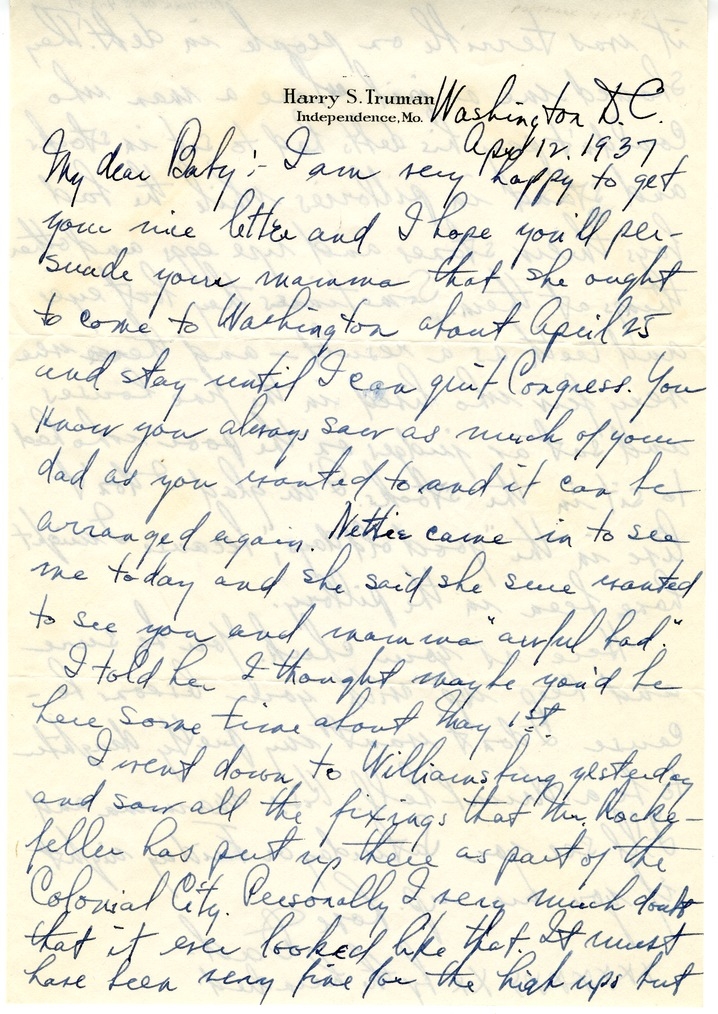 Harry S. Truman
Independence, Mo.
Washington D.C.
April 12, 1937
My dear Baby:- I am very happy to get
your nice letter and I hope you'll per-
suade your mamma that she ought
to come to Washington about April 25
and stay until I can quit Congress. You
know you always saw as much of your
dad as you wanted to and it can be
arranged again. Nettie came in to see
me today and she said she sure wanted
to see you and mamma "awful bad."
I told her I thought maybe you'd be
here some time about May 1st.
I went down to Williamsburg yesterday
and saw all the fixings that Mr. Rocke-
feller has put up there as part of the
Colonial City. Personally I very much doubt
that it ever looked like that. It must
have been very fine for the high ups but